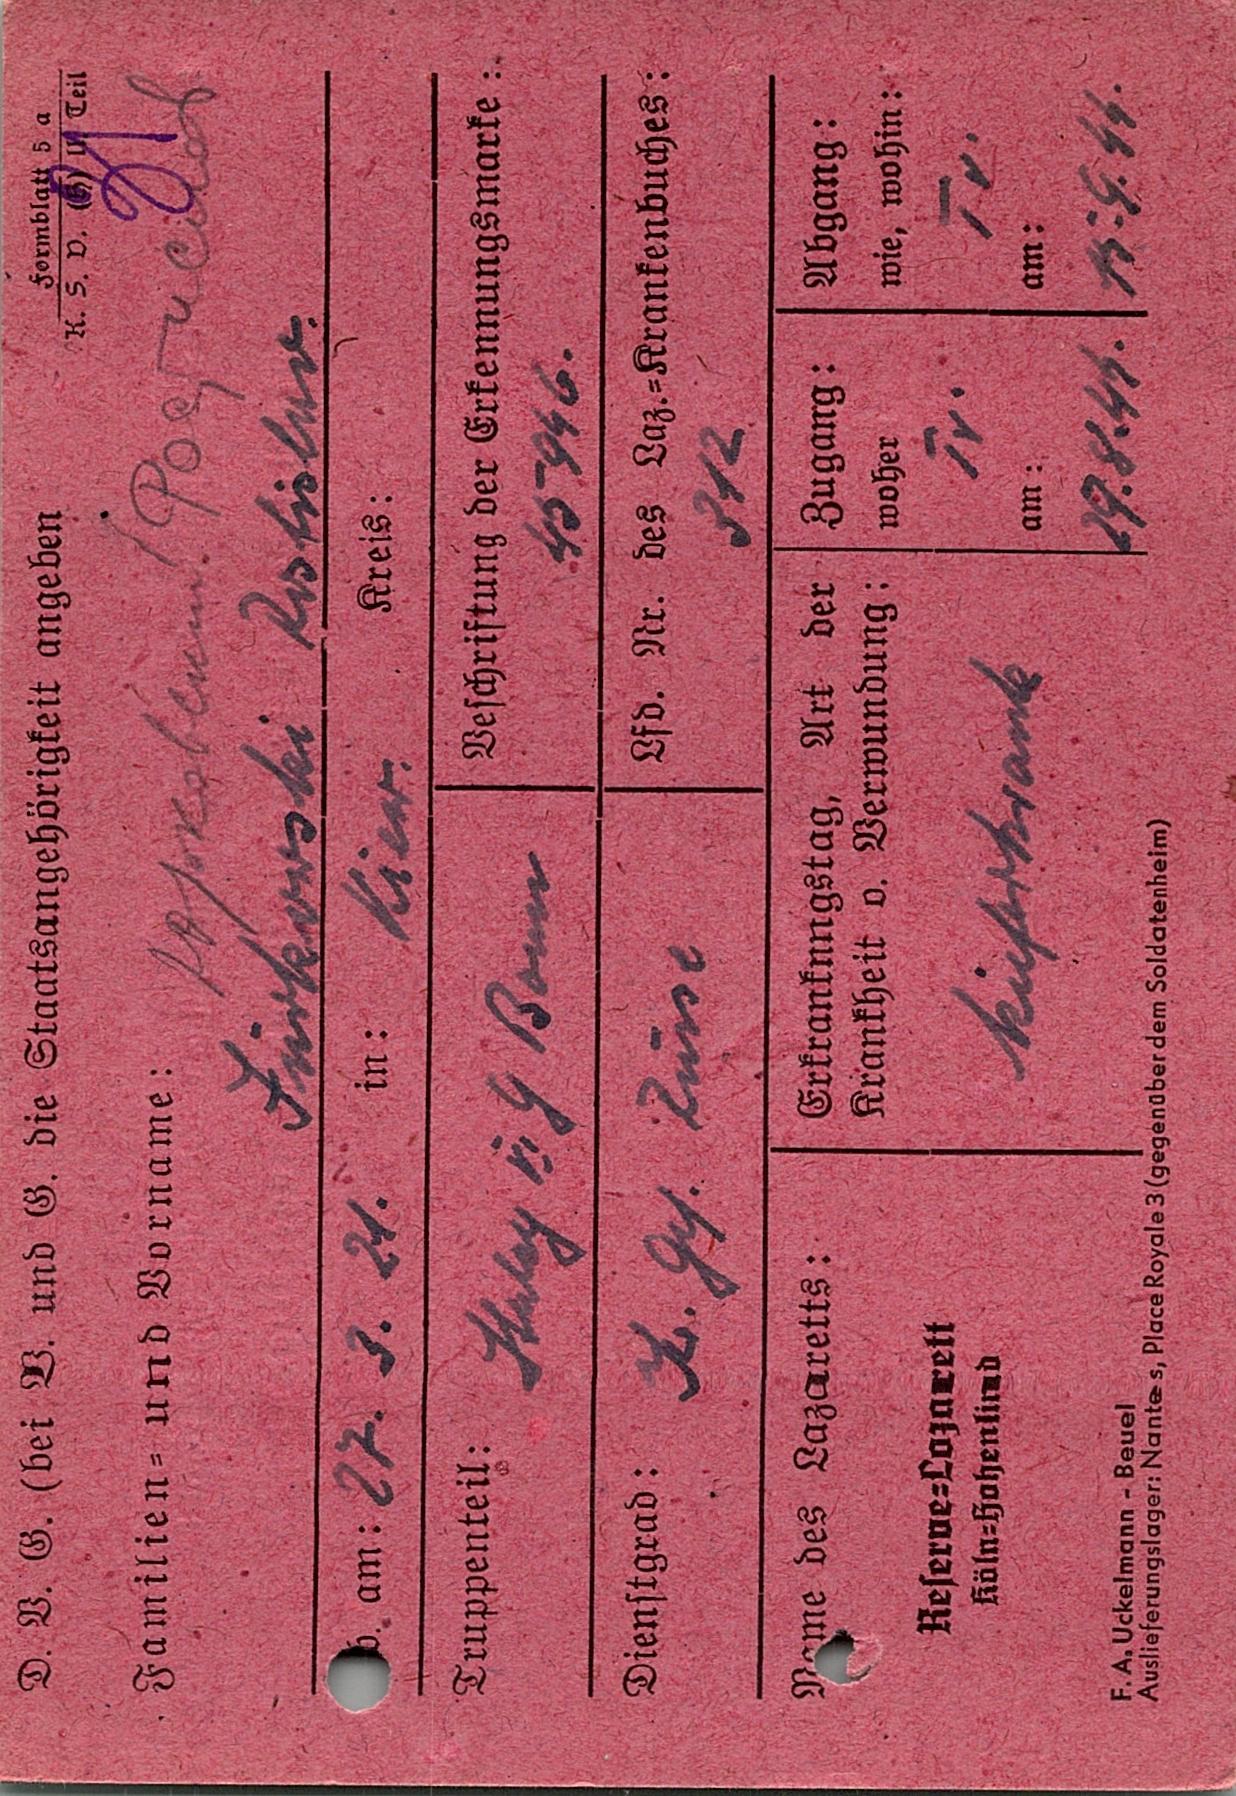 D. V. G. (bei V. und G. die Staatsangehörigkeit angeben
Formblatt 5 a
K. S. V. (G) II Teil
Familien- und Vorname:
Ростислав
Rostislaw.
geb. am: 27. 3. 21. in: Kiew. Kreis:
Truppenteil: Stalag VI G Bonn
Beschriftung der Erkennungsmarke:
45946.
Dienstgrad: Kr. Gef. Russe
Lfd. Nr. des Laz.-Krankenbuches:
312
Name des Lazaretts:
Reserve-Lazarett
Köln-Hohenlind
Erkrankungstag, Art der
Krankheit o. Verwundung:
Zugang:
woher
Tr.
am:
29.8.44.
Abgang:
wie, wohin:
Tr.
am:
15.9.44.
F. A. Uckelmann - Beuel
Auslieferungslager: Nantes, Place Royale 3 (gegenüber dem Soldatenheim)